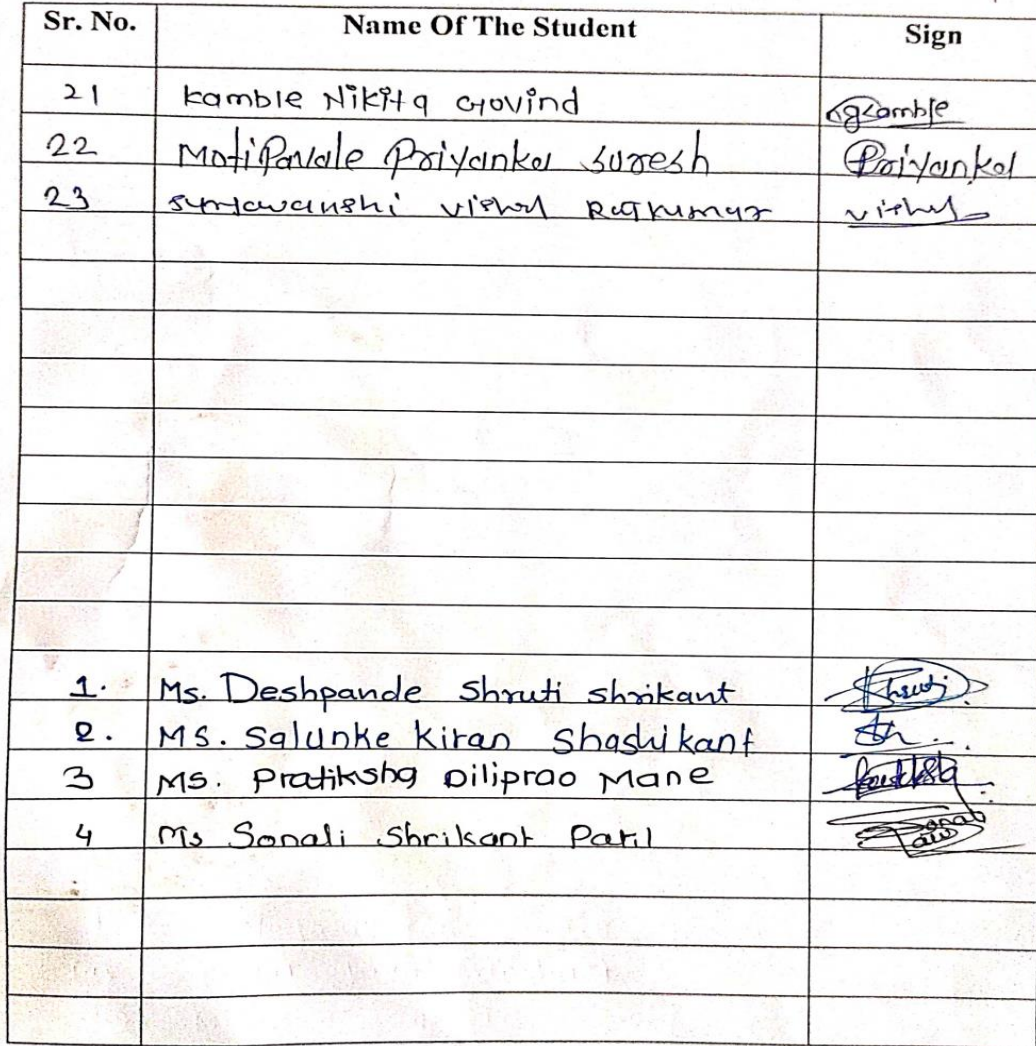 Sr. No. Name Of The Student Sign
21 Kamble Nikita Govind ngkamble
22 Motipavale Priyanka Suresh Priyanka
23 Suryawanshi Vishal Rajkumar Vishal
1. Ms. Deshpande Shruti Shrikant Shruti
2. MS. Salunke Kiran Shashikant
3 MS. Pratiksha Diliprao Mane
4 Ms Sonali Shrikant Patil Sonali